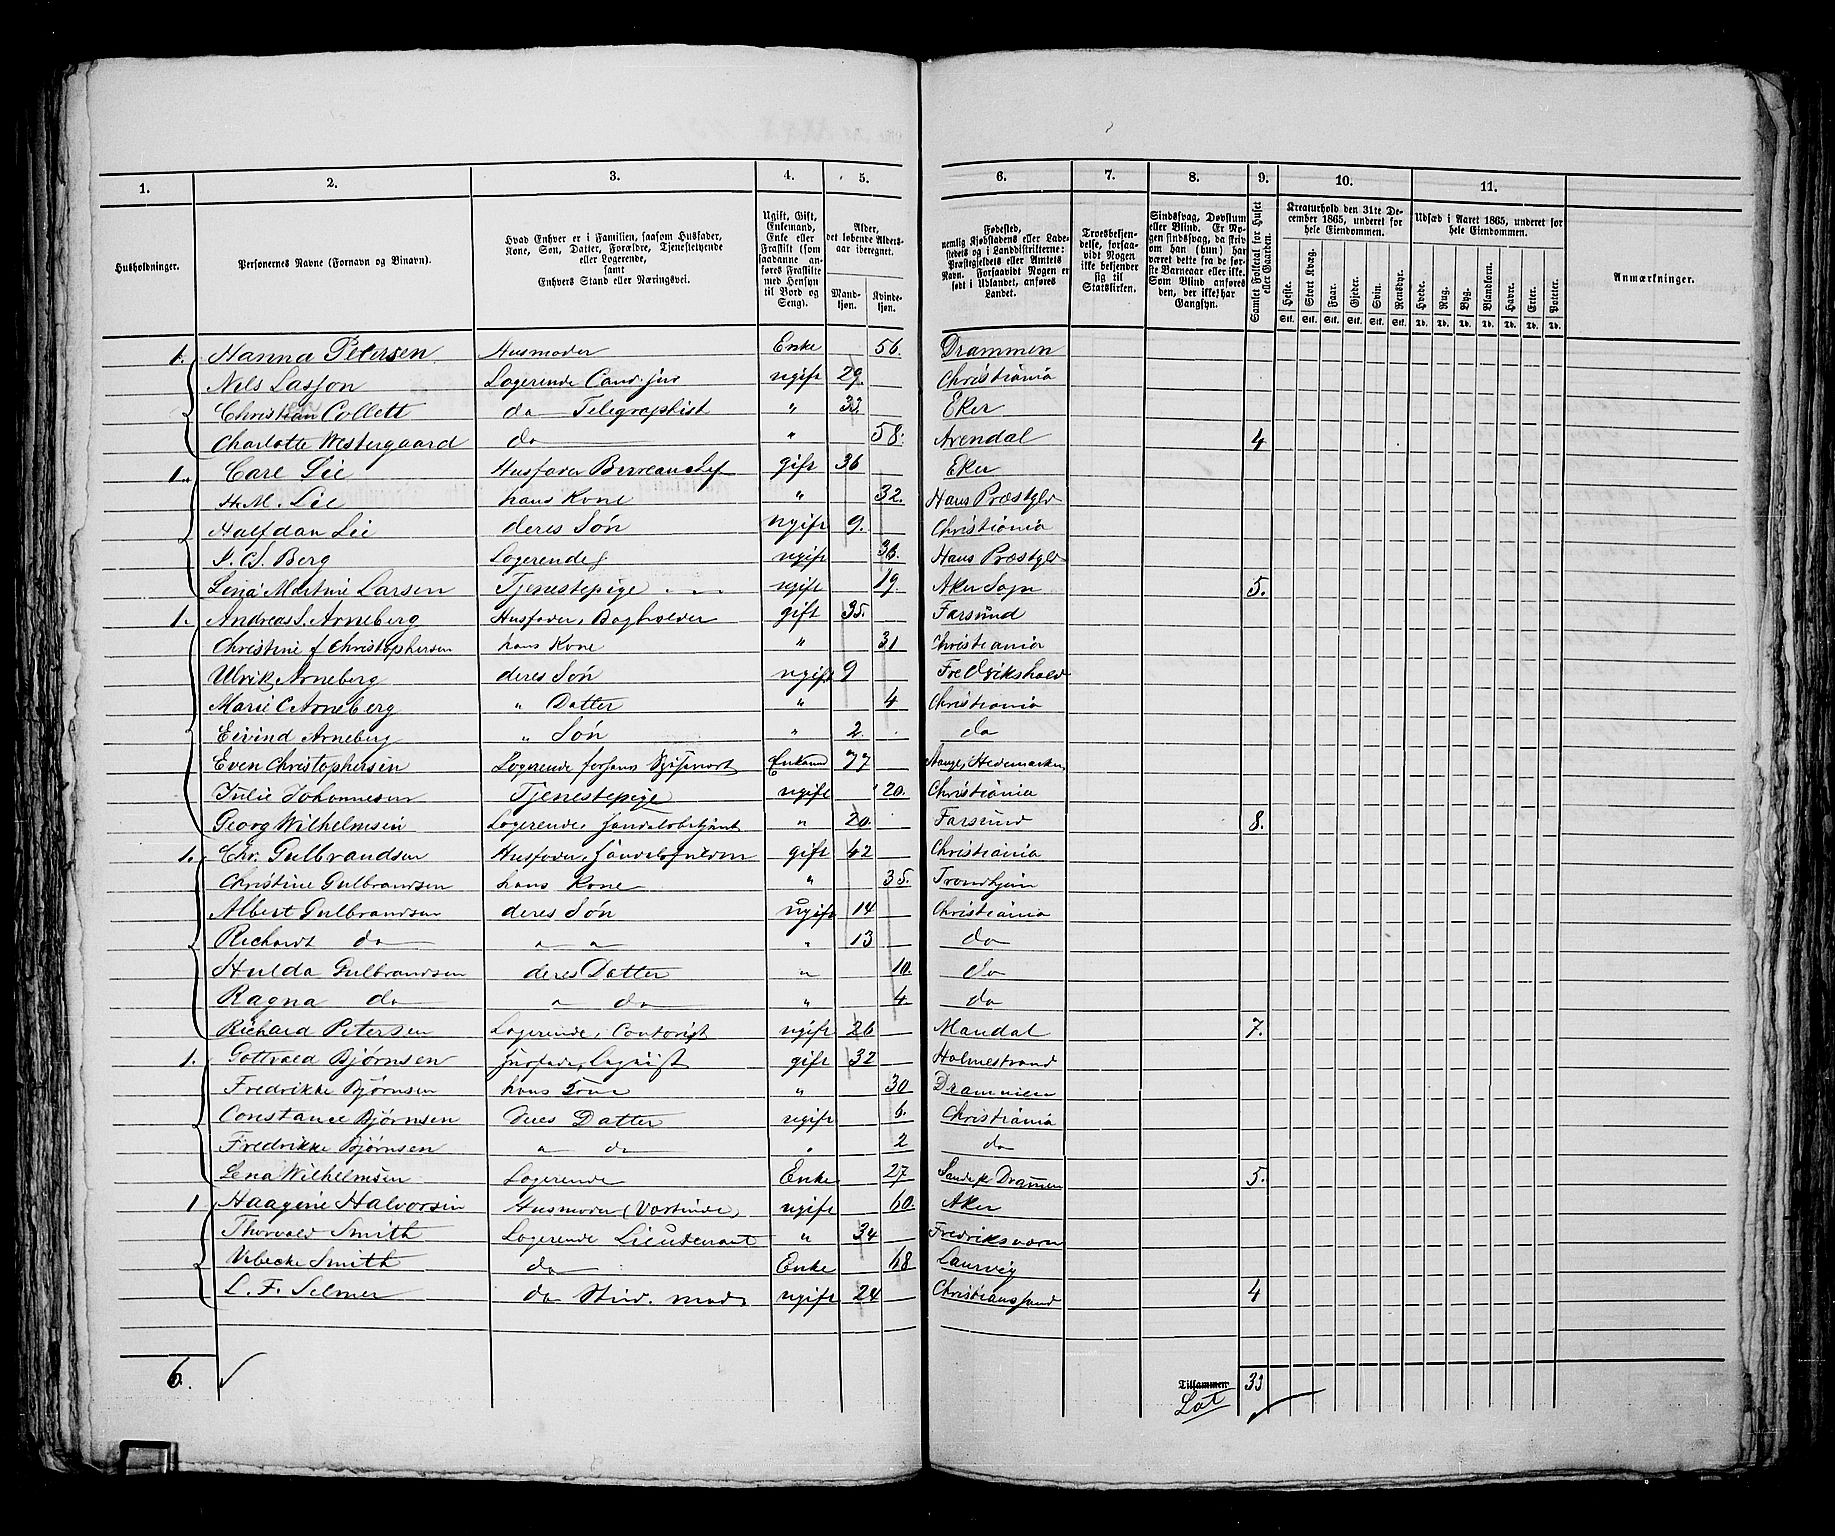 1. 2. 3. 4. 5. 6. 7. 8. 9. 10. 11.
Husholdninger.
Personernes Navne (Fornavn og Tilnavn).
Hvad Enhver er i Familien, saasom Husfader, Kone, Søn, Datter, Forældre, Tjenestetyende eller Logerende, samt Enhvers Stand eller Næringsvei.
Ugift, Gift, Enkemand, Enke eller Fraskilt (som saadanne anføres Fraskilte med Hensyn til Bord og Seng).
Alder, det løbende Aldersaar iberegnet.
Mandkjøn. Kvindekjøn.
Fødested, nemlig Kjøbstadens eller Ladestedets og i Landdistrikterne: Præstegjeldets eller Amtets Navn. Forsaavidt Nogen er født i Udlandet, anføres Landet.
Troesbekjendelse, forsaavidt Nogen ikke bekjender sig til Statskirken.
Sindssvag, Døvstum eller Blind. Er Nogen sindssvag, da skrives om han (hun) har været dette fra de første Barneaar eller ikke. Som Blind anføres den, der ikke har Gangsyn.
Samlet Folketal for Huset eller Gaarden.
Kreaturhold den 31te December 1865, underet for hele Eiendommen.
Heste. Stort Kvæg. Faar. Gjeder. Svin. Rensdyr.
Stk. Stk. Stk. Stk. Stk. Stk.
Udsæd i Aaret 1865, underet for hele Eiendommen.
Hvede. Rug. Byg. Blandkorn. Havre. Erter. Poteter.
Td. Td. Td. Td. Td. Td. Td.
Anmærkninger.
1. Hanna Petersen Husmoder Enke 56. Drammen
Nels Lasson Logerende Cand. jur ugift 29. Christiania
Christian Collett do Telegraphist " 33. Eker
Charlotte Westergaard do " 58. Arendal 4
1. Carl Lie Husfader Bureauchef gift 36 Eker
H.M. Lie hans Kone " 32. Hans Præstgld
Halfdan Lie deres Søn ugift 9. Christiania
Berg Logerende ugift 36. Hans Præstgld
Lina Martine Larsen Tjenestepige ugift 19. Aker Sogn 5.
1. Andreas S. Arneberg Husfader, Bogholder gift 35. Farsund
Christine f Christophersen hans Kone " 31 Christiania
Ulrik Arneberg deres Søn ugift 9 Fredrikshald
Marie C Arneberg " Datter " 4 Christiania
Eivind Arneberg " Søn " 2. do
Even Christophersen Logerende Enkemd 77 Stange, Hedemarken
Julie Johannesen Tjenestepige ugift 20. Christiania
Georg Wilhelmsen Logerende, Handelsbetjent " 20. Farsund 8.
1. Chr. Gulbrandsen Husfader, Handelsfuldm gift 42 Christiania
Christine Gulbrandsen hans Kone " 35. Trondhjem
Albert Gulbrandsen deres Søn ugift 14 Christiania
Richardt do " " " 13 do
Hulda Gulbrandsen deres Datter " 10. do
Ragna do " do " 4. do
Richard Petersen Logerende, Contorist ugift 26 Mandal 7.
1. Gottvald Bjørnsen Husfader, gift 32 Holmestrand
Fredrikke Bjørnsen hans Kone " 30 Drammen
Constance Bjørnsen deres Datter ugift 6. Christiania
Fredrikke Bjørnsen " do " 2 do
Lena Wilhelmsen Logerende Enke 27 Sande p. Drammen 5.
1 Haagine Halvorsen Husmoder (Vertinde) ugift 60. Aker
Thorvald Smith Logerende Lieutenant " 34 Fredriksværn
Vibecke Smith do Enke 68 Laurvig
L. F. Selmer do Stud. med. ugift 24 Christianssand 4
6. Tilsammen 33
Lat